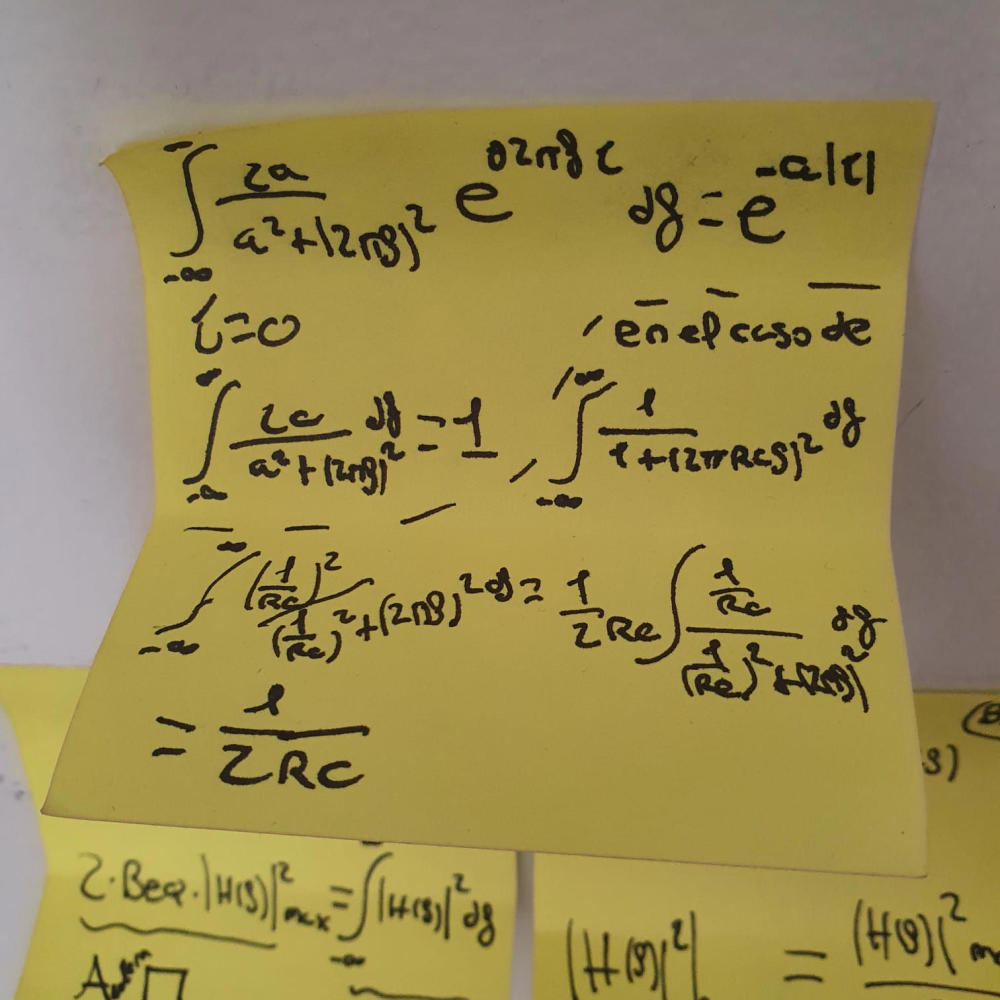 ∫_{-∞}^{∞} 2a / (a² + (2πf)²) e^{j2πfτ} df = e^{-a|τ|}
τ=0
en el caso de
∫_{-∞}^{∞} 2a / (a² + (2πf)²) df = 1
∫_{-∞}^{∞} 1 / (1 + (2πRCf)²) df
∫_{-∞}^{∞} (1/RC)² / ((1/RC)² + (2πf)²) df = 1/2RC ∫ (1/RC) / ((1/RC)² + (2πf)²) df
= 1 / 2RC
2·Beq·|H(f)|²max = ∫_{-∞}^{∞} |H(f)|² df
|H(f)|² = |H(f)|²